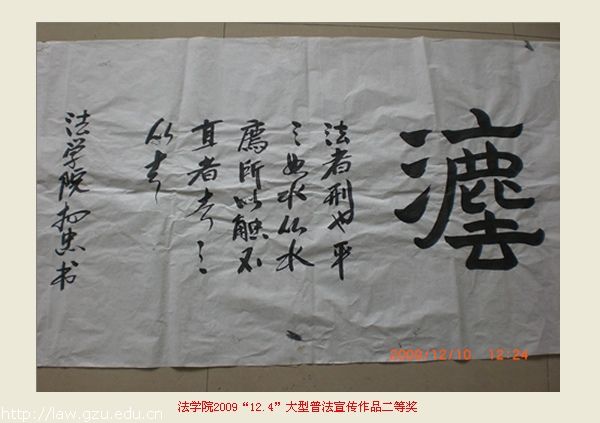 灋
法者刑也平
之如水从水
廌所以触不
直者去之
从去
法学院 忠书
2009/12/10 12:24
http://law.gzu.edu.cn
法学院2009“12.4”大型普法宣传作品二等奖